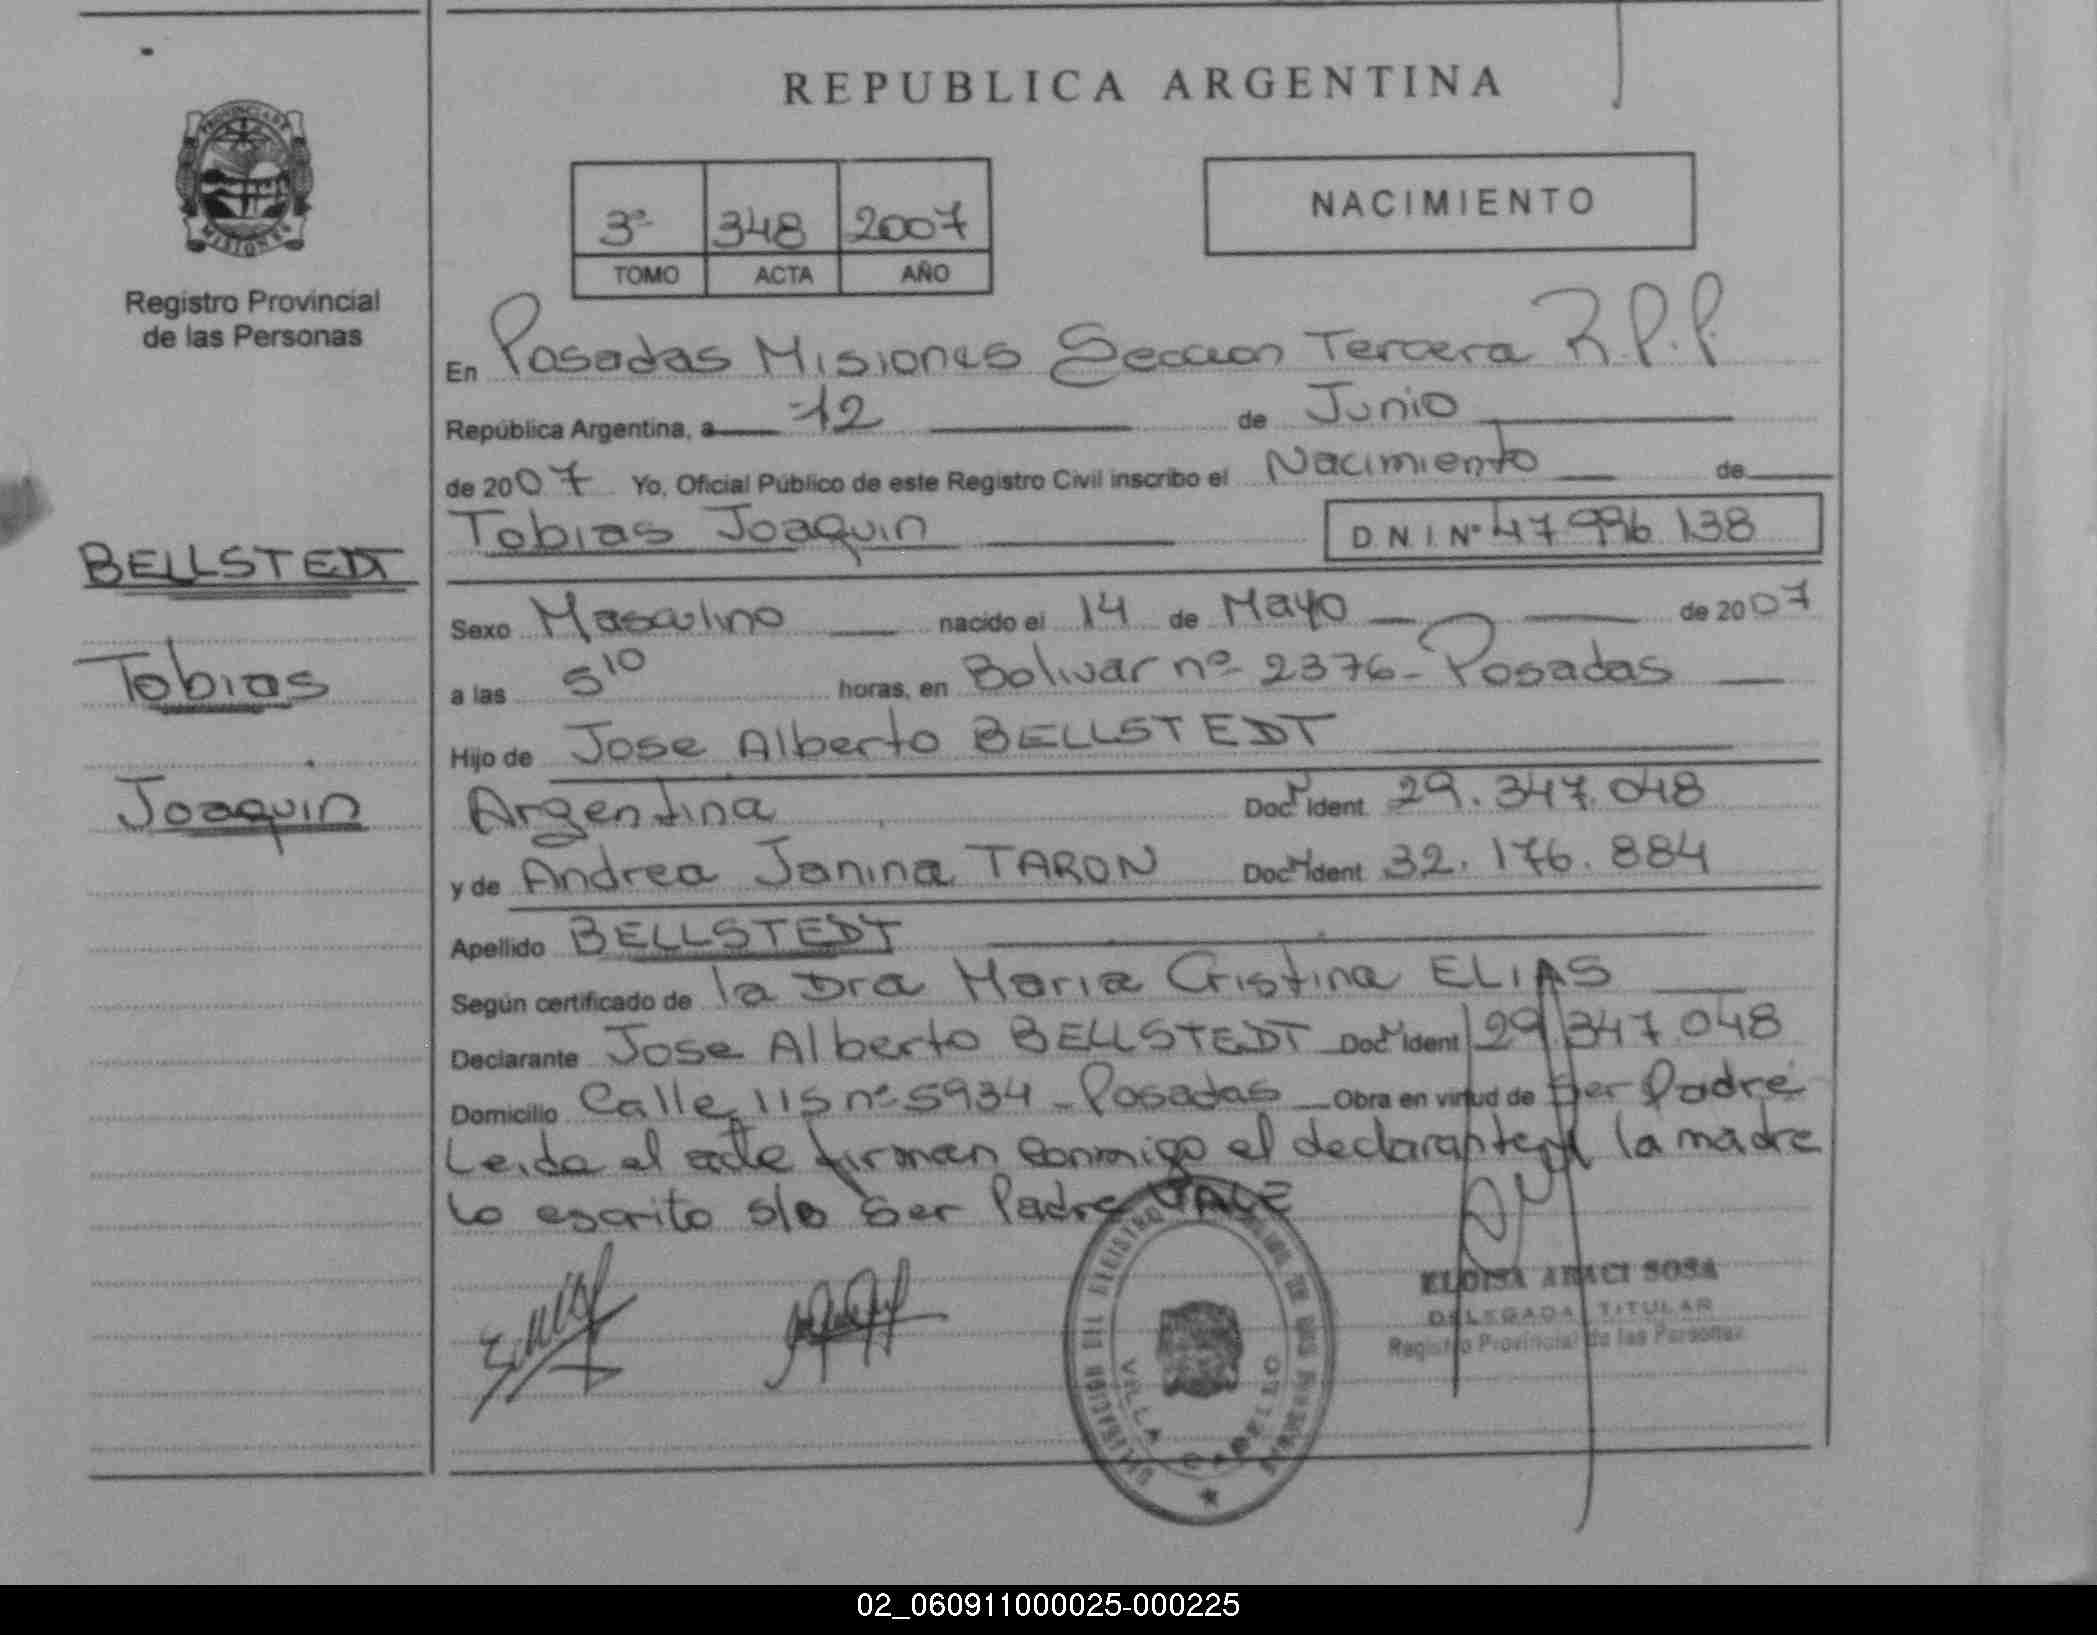 REPUBLICA ARGENTINA
PROVINCIA DE
MISIONES
Registro Provincial
de las Personas
3ª 348 2007
TOMO ACTA AÑO
NACIMIENTO
En Posadas Misiones Seccion Tercera R.P.P.
República Argentina, a 12 de Junio
de 2007 Yo, Oficial Público de este Registro Civil inscribo el Nacimiento de
Tobias Joaquin D.N.I. Nº 47 996 138
BELLSTEDT
Tobias
Joaquin
Sexo Masculino nacido el 14 de Mayo de 2007
a las 5¹⁰ horas, en Bolivar nº 2376 - Posadas
Hijo de Jose Alberto BELLSTEDT
Argentina Docᴺ Ident 29.347.048
y de Andrea Janina TARON Docᴺ Ident 32.176.884
Apellido BELLSTEDT
Según certificado de la Dra Maria Cristina ELIAS
Declarante Jose Alberto BELLSTEDT Docᴺ Ident 29 347 048
Domicilio Calle 115 nº 5934 - Posadas Obra en virtud de Ser Padre
Leida el acta firman conmigo el declarante y la madre
Lo escrito s/b Ser Padre VALE
VILLA CABELLO
ELOISA ARACI SOSA
DELEGADA TITULAR
Registro Provincial de las Personas
02_060911000025-000225